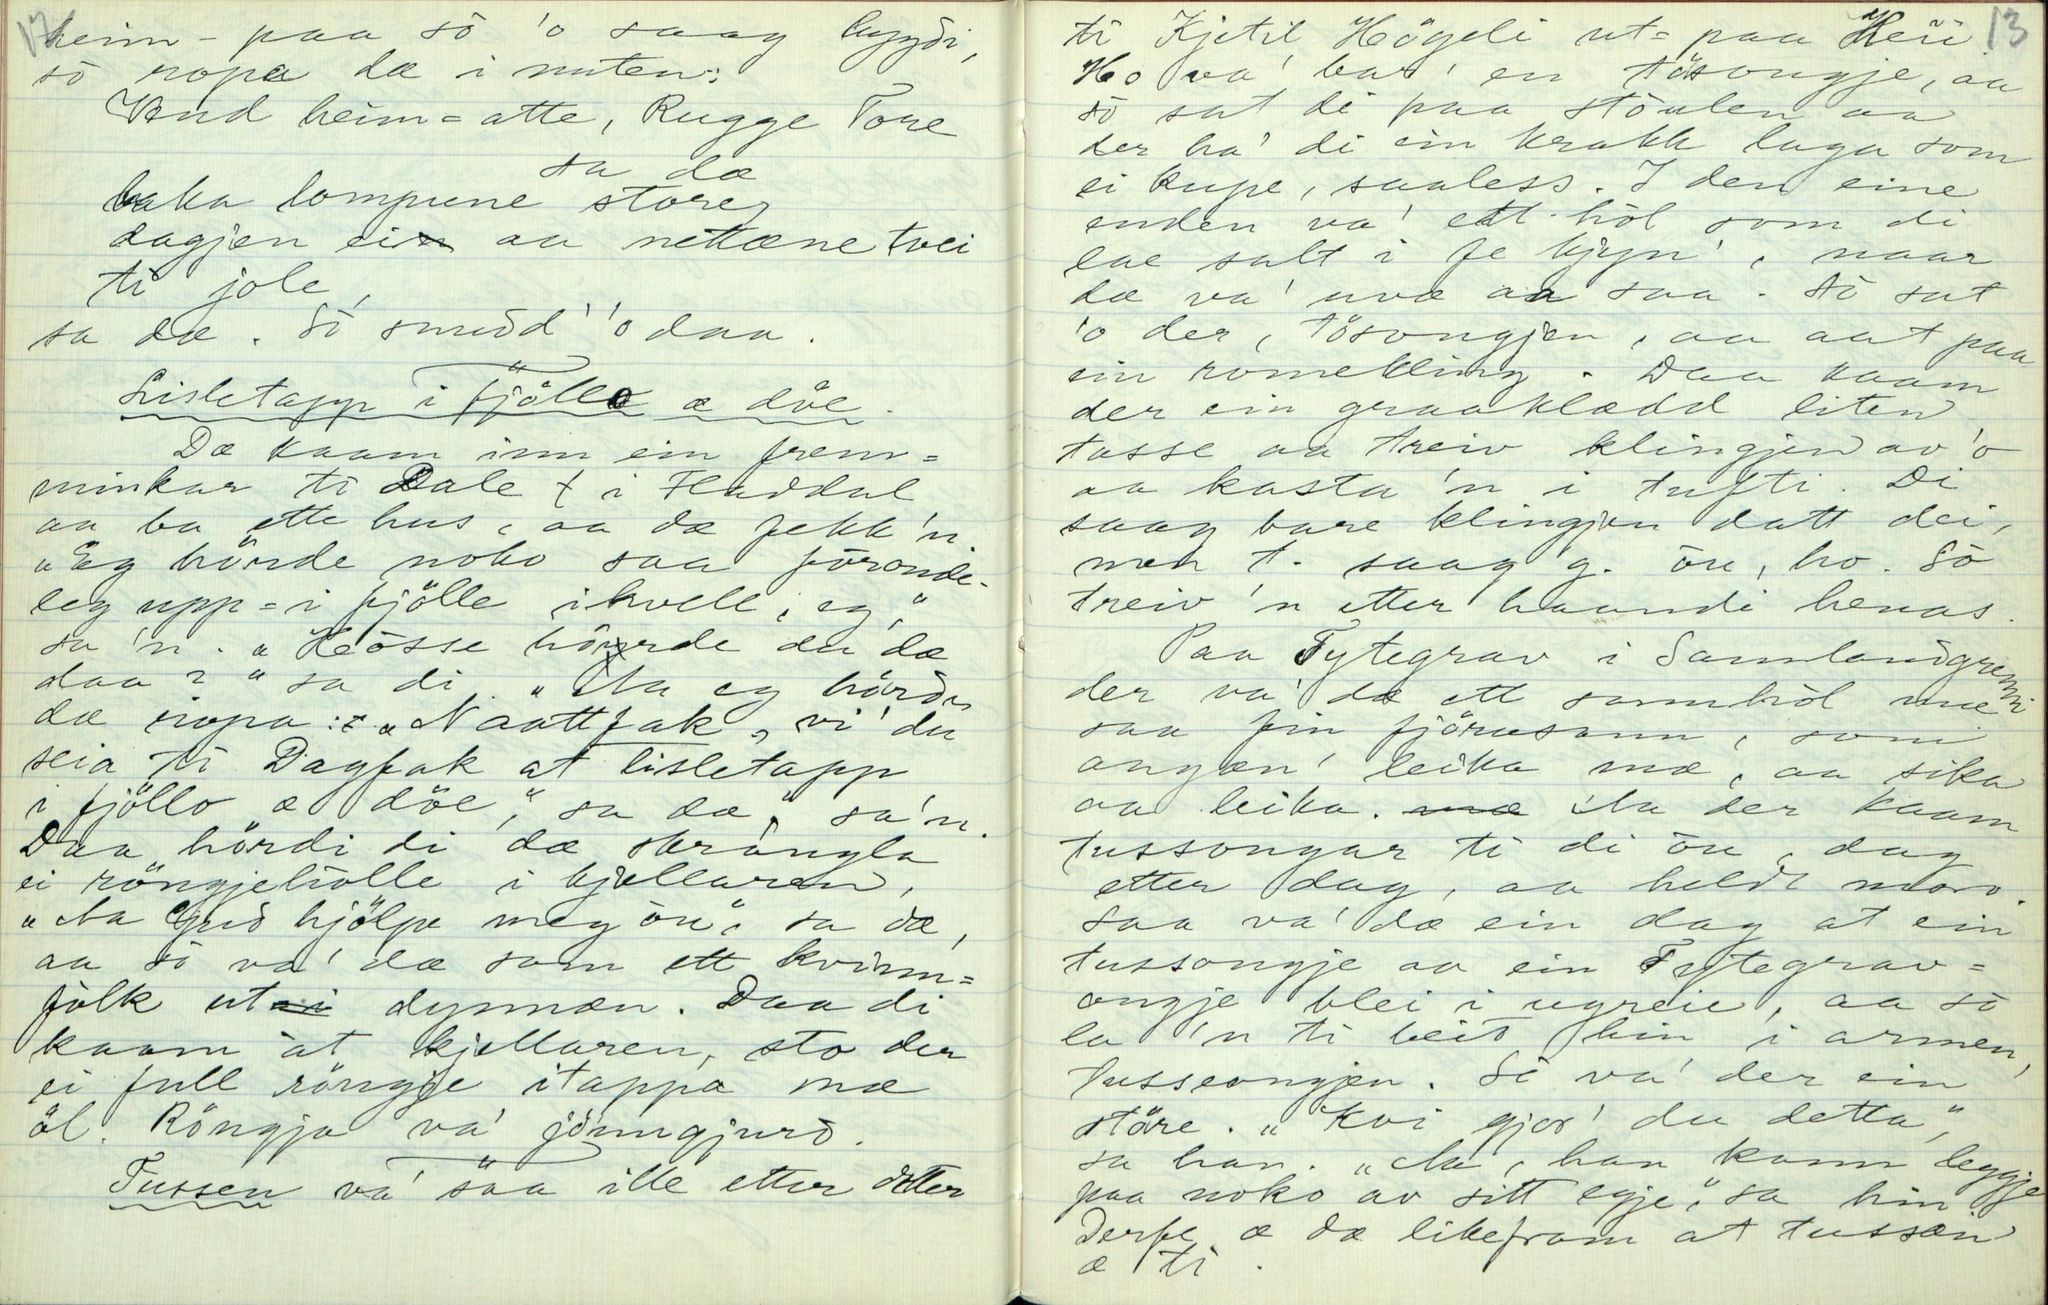 heim - paa sö 'o saag bygdi,
sö ropa dæ i nuten:
Vend heim = atte, Rugge Tone
sa dæ
baka lompune store,
dagjen ein aa nettæne tvei
ti jole,
sa dæ. Sö snudd' 'o daa.
Lisletapp i fjöllo æ döe.
Dæ kaam inn ein frem=
minkar ti Dale i Haddal
aa ba ette hus, aa dæ fekk 'n
"Eg hörde noko saa föronde-
leg upp = i fjölle ikvell, eg,"
sa 'n. "Hösse hörde du dæ
daa?" sa di. "Aa eg hörde
dæ ropa: "Naattfak, vi' du
seia ti Dagfak at lisletapp
i fjöllo æ döe," sa dæ," sa 'n.
Daa hördi di dæ skrangla
ei röngjehölle i kjellaren,
"Aa Gud hjölpe meg öu," sa dæ,
aa sö va' dæ som ett kvinn=
fölk ut dynnæn. Daa di
kaam åt kjellaren, sto der
ei full röngje itappa mæ
öl. Röngja va' jönngjurd.
Tussen va' såa ille etter dötter
13
ti Kjetil Högeli ut = paa Heii.
Ho va' bar' en tösongje, aa
sö sat di paa stöulen aa
der ha' di ein krakk laga som
ei kupe, saaless. I den eine
enden va' ett höl som di
lae salt i fe kjyn', naar
dæ va' uvæ aa saa. Sö sat
'o der, tösongjen, aa aat paa
ein romekling. Daa kaam
der ein graaklædd liten
tasse aa treiv klingjen av 'o
aa kasta 'n i tufti. Di
saag bare klingjen datt dei,
men t. saag g. öu, ho. Sö
treiv 'n etter haandi henas.
Paa Tytegrav i Samlandgrenni
der va' dæ ett sannhöl mæ
saa fin fjörusann, som
ongæn' leika mæ, aa sika
aa leika. Aa der kaam
tussongar ti di öu, dag
etter dag, aa heldt moro.
Saa va' dæ ein dag at ein
tussongje aa ein Tytegrav=
ongje blei i ugreie, aa sö
la 'n ti beid hin i armen,
tusseongjen. Sö va' der ein
störe. "Kvi gjor' du detta,"
sa han. "Aa, han kann leggje
paa noko av sitt egje," sa hin
Derfe æ dæ likefram at tussæn
æ ti.